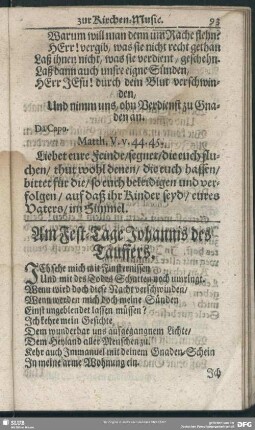 zur Kirchen-Music. 93
Warum will man denn um Rache flehn?
HErr! vergib, was sie nicht recht gethan
Laß ihnen nicht, was sie verdient, geschehn.
Laß dann auch unsre eigne Sünden,
HErr JEsu! durch dein Blut verschwin-
den,
Und nimm uns, ohn Verdienst zu Gna-
den an.
Da Capo.
Matth. V. v. 44. 45.
Liebet eure Feinde/ segnet/ die euch flu-
chen/ thut wohl denen/ die euch hassen/
bittet für die/ so euch beleidigen und ver-
folgen/ auf daß ihr Kinder seyd/ eures
Vaters/ im Himmel.
Am Fest-Tage Johannis des
Täuffers.
ICh sehe mich mit Finsternissen
Und mit des Todes Schatten noch umringt.
Wenn wird doch diese Nacht verschwinden/
Wenn werden mich doch meine Sünden
Einst ungeblendet lassen müssen?
Ich kehre mein Gesichte,
Dem wunderbar uns aufgegangnem Lichte/
Dem Heyland aller Menschen zu.
Kehr auch Immanuel mit deinem Gnaden-Schein
In meine arme Wohnung ein.
Ich
SLUB
DFG